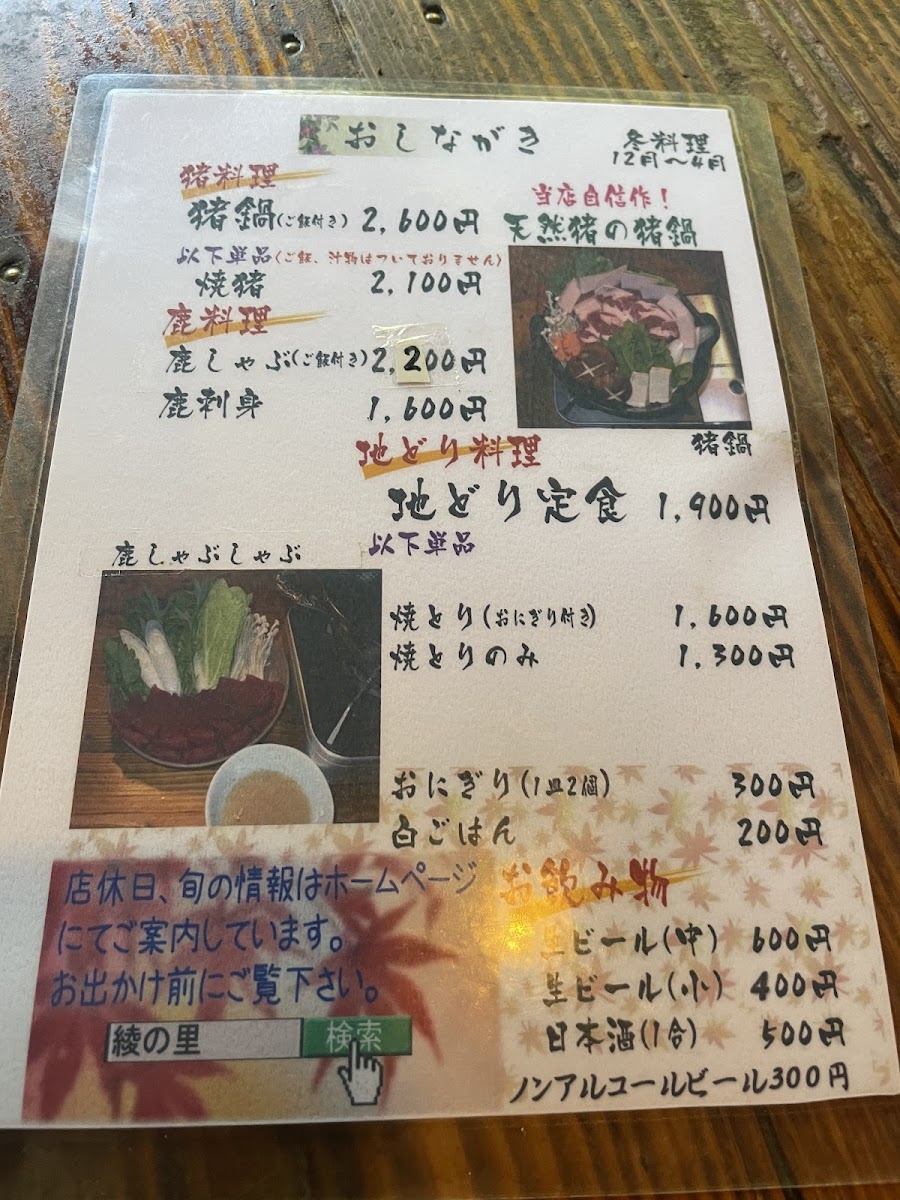 おしながき
冬料理
12月～4月
猪料理
猪鍋(ご飯付き) 2,600円
以下単品(ご飯、汁物はついておりません)
焼猪 2,100円
鹿料理
鹿しゃぶ(ご飯付き) 2,200円
鹿刺身 1,600円
当店自信作！
天然猪の猪鍋
猪鍋
地どり料理
地どり定食 1,900円
以下単品
鹿しゃぶしゃぶ
焼とり(おにぎり付き) 1,600円
焼とりのみ 1,300円
おにぎり(1皿2個) 300円
白ごはん 200円
お飲み物
生ビール(中) 600円
生ビール(小) 400円
日本酒(1合) 500円
ノンアルコールビール300円
店休日、旬の情報はホームページ
にてご案内しています。
お出かけ前にご覧下さい。
綾の里 検索